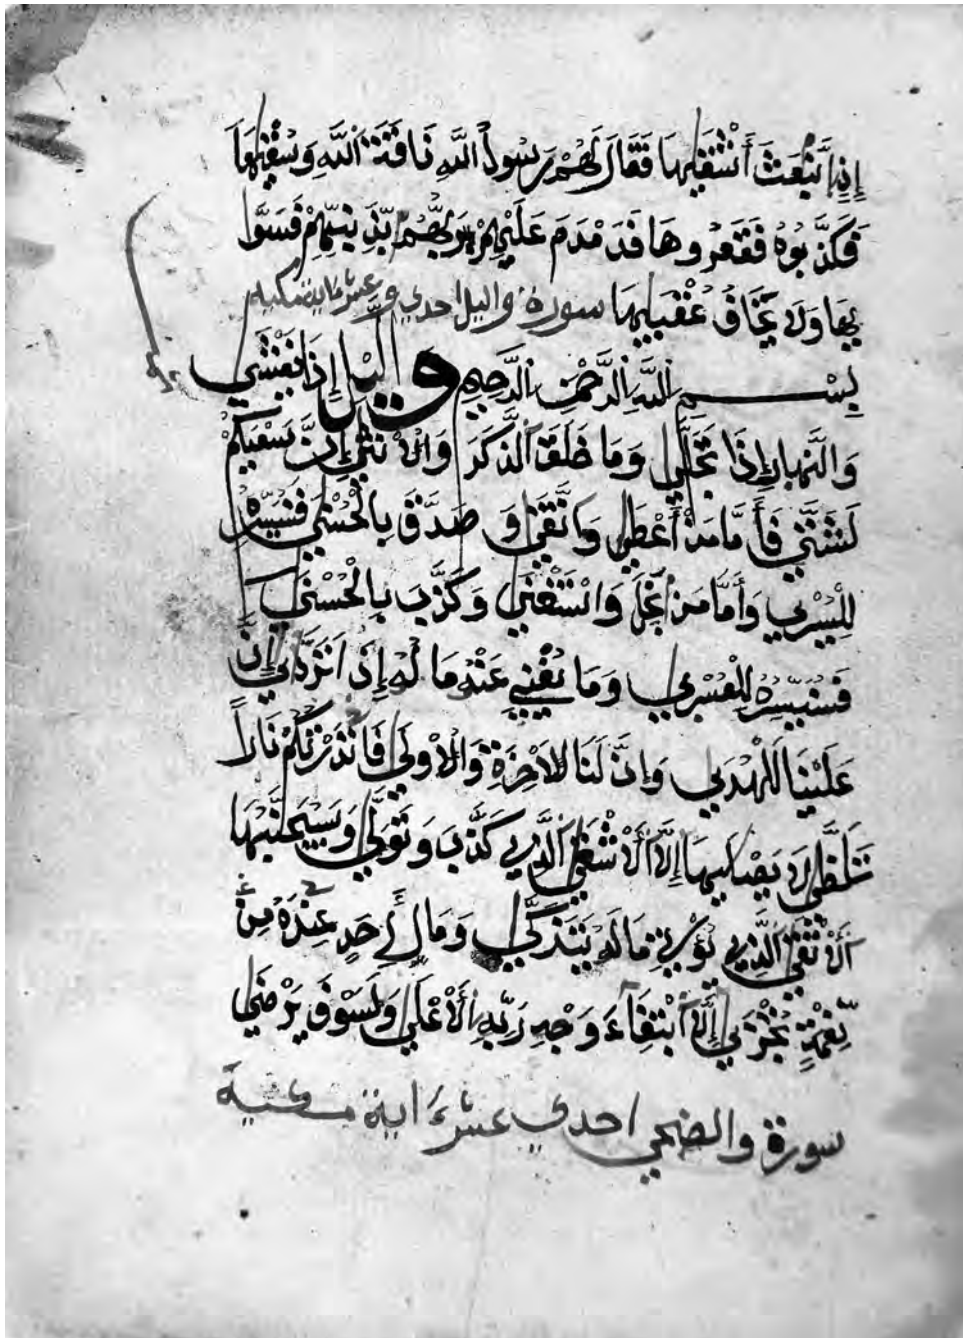 إِذِ انبَعَثَ أَشْقَيٰهَا فَقَالَ لَهُمْ رَسُولُ اللَّهِ نَاقَةَ اللَّهِ وَسُقْيَٰهَا
فَكَذَّبُوهُ فَعَقَرُوهَا فَدَمْدَمَ عَلَيْهِمْ رَبُّهُم بِذَنبِهِمْ فَسَوَّا
يهَا وَلَا يَخَافُ عُقْبَٰيهَا سورة واليل احدي وعشر ءاية مكية
بِسْمِ اللَّهِ الرَّحْمَٰنِ الرَّحِيمِ وَاليْلِ إِذَا يَغْشَي
وَالنَّهَارِ إِذَا تَجَلَّي وَمَا خَلَقَ الذَّكَرَ وَالْأُنثَي إِنَّ سَعْيَكُمْ
لَشَتَّي فَأَمَّا مَنْ أَعْطَي وَاتَّقَي وَصَدَّقَ بِالْحُسْنَي فَسَنُيَسِّرُهُ
لِلْيُسْرَي وَأَمَّا مَن بَخِلَ وَاسْتَغْنَي وَكَذَّبَ بِالْحُسْنَي
فَسَنُيَسِّرُهُ لِلْعُسْرَي وَمَا يُغْنِي عَنْهُ مَا لُهُ إِذَا تَرَدَّي إِنَّ
عَلَيْنَا لَلْهُدَي وَإِنَّ لَنَا لَلْأَخِرَةَ وَالْأُولَي فَأَنذَرْتُكُمْ نَاراً
تَلَظَّي لَا يَصْلَيهَا إِلَّا الْأَشْقَي الَّذِي كَذَّبَ وَتَوَلَّي وَسَيُجَنَّبُهَا
الْأَتْقَي الَّذِي يُؤْتِي مَالَهُ يَتَزَكَّي وَمَا لِأَحَدٍ عِندَهُ مِن
نِّعْمَةٍ تُجْزَي إِلَّا ابْتِغَاءَ وَجْهِ رَبِّهِ الْأَعْلَي وَلَسَوْفَ يَرْضَي
سورة والضحي احدي عشر ءاية مكية